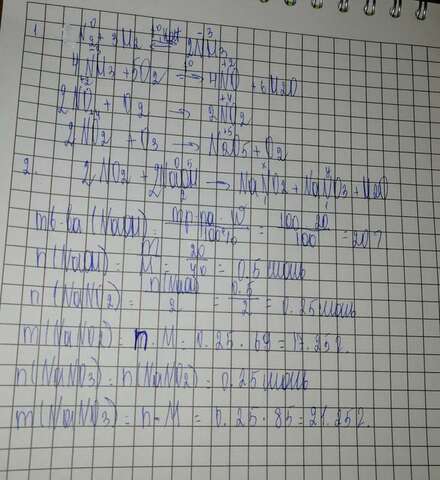 1. N₂ + 3H₂ ⇌ 2NH₃
4NH₃ + 5O₂ → 4NO + 6H₂O
2NO + O₂ → 2NO₂
2NO₂ + O₃ → N₂O₅ + O₂
2. 2NO₂ + 2NaOH → NaNO₂ + NaNO₃ + H₂O
m в-ва (NaOH) = mр-ра · W / 100% = 100 · 20 / 100 = 20 г
n(NaOH) = m / M = 20 / 40 = 0.5 моль
n(NaNO₂) = n(NaOH) / 2 = 0.5 / 2 = 0.25 моль
m(NaNO₂) = n · M = 0.25 · 69 = 17.25 г.
n(NaNO₃) = n(NaNO₂) = 0.25 моль
m(NaNO₃) = n · M = 0.25 · 85 = 21.25 г.